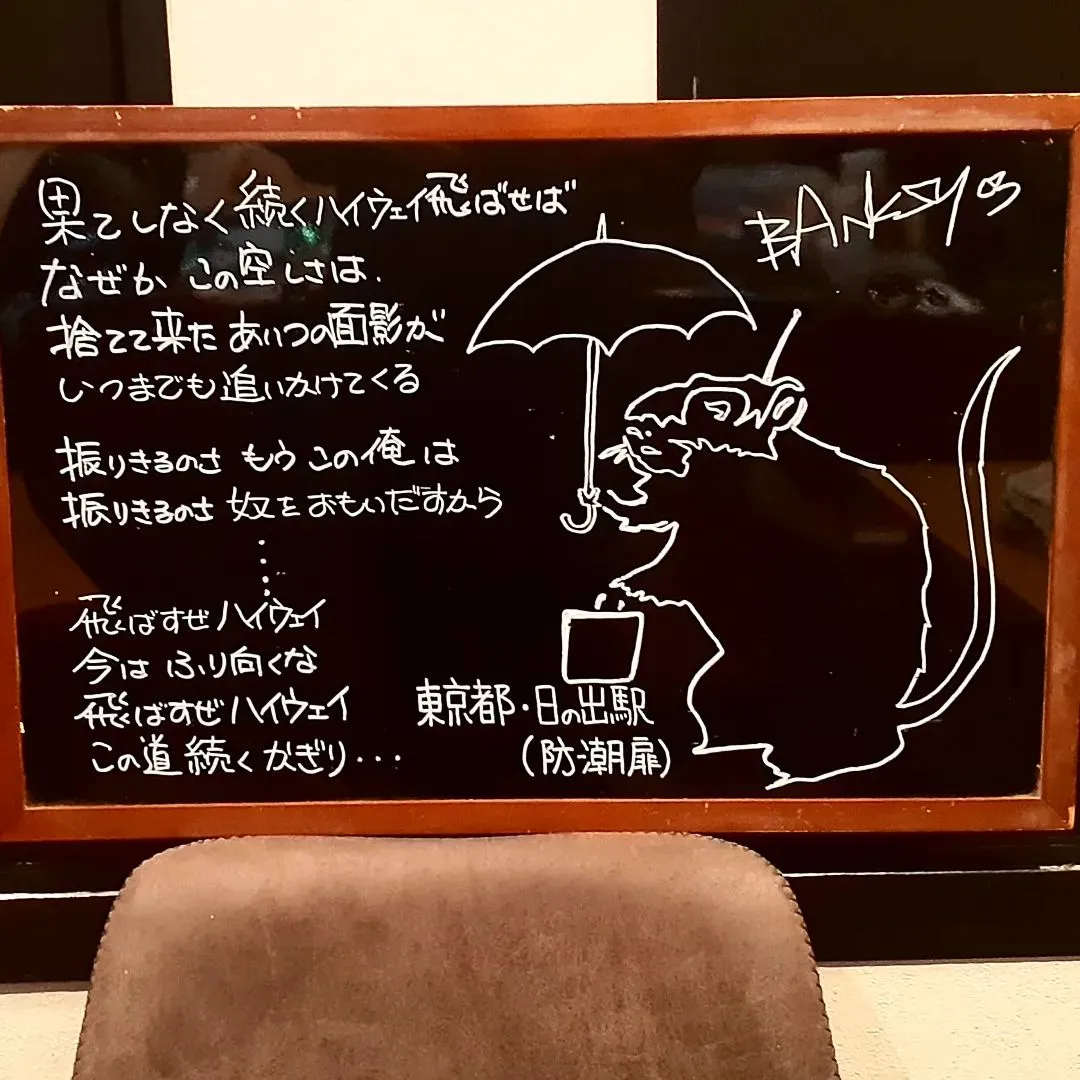 果てしなく続くハイウェイ飛ばせば
なぜか この空しさは.
捨てて来た あいつの面影が
いつまでも追いかけてくる
振りきるのさ もう この俺は
振りきるのさ 奴をおもいだすから
⋮
飛ばすぜハイウェイ
今は ふり向くな
飛ばすぜハイウェイ
この道続くかぎり・・・
BANKSY
東京都・日の出駅
(防潮扉)